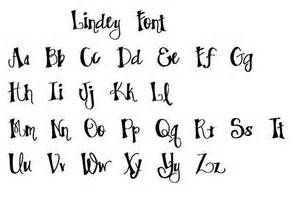 Lindey Font
Aa Bb Cc Dd Ee Ff Gg
Hh Ii Jj Kk Ll
Mm Nn Oo Pp Qq Rr Ss Tt
Uu Vv Ww Xx Yy Zz